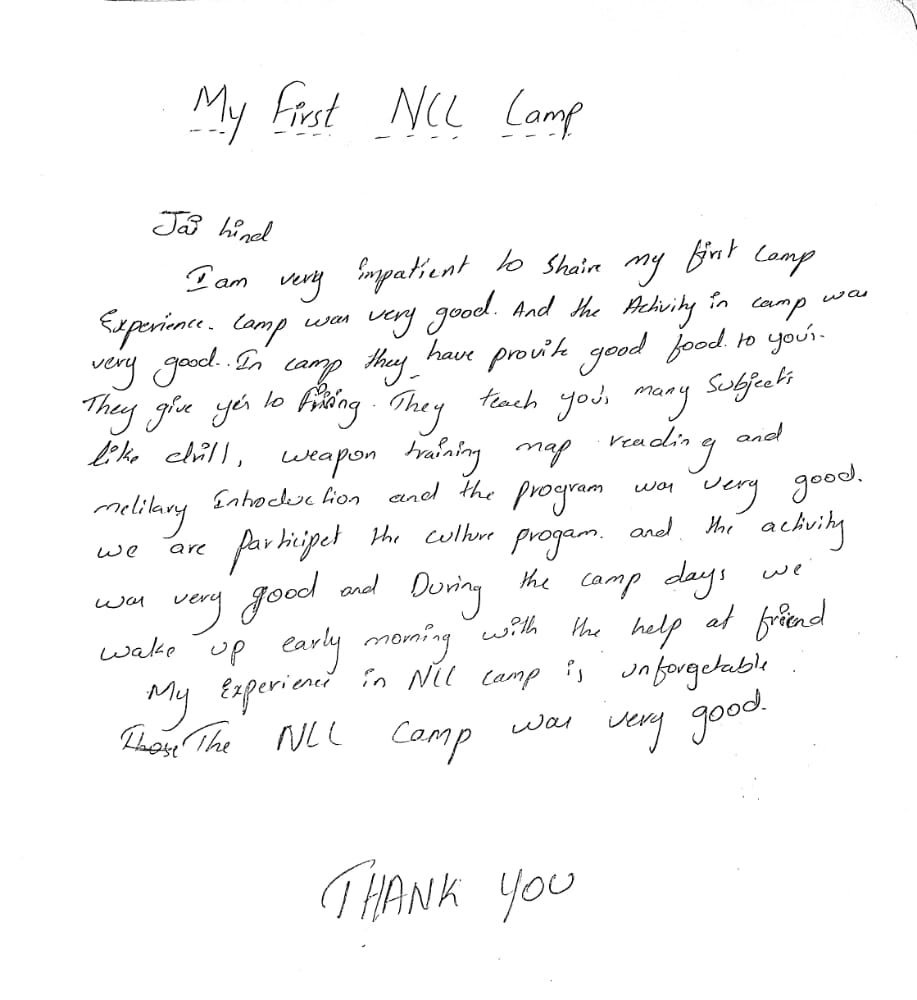 My First NCC Camp
Jai hind
I am very impatient to Shair my first Camp
Experience. Camp was very good. And the Activity in camp was
very good. In camp they have provite good food to you's.
They give yes to firing. They teach you's many Subjects
like drill, weapon training map reading and
melitary Introduction and the program was very good.
we are Participet the culture progam. and the activity
was very good and During the camp days we
wake up early morning with the help at friend
My Experience in NCC camp is unforgetable.
The NCC Camp was very good.
THANK YOU